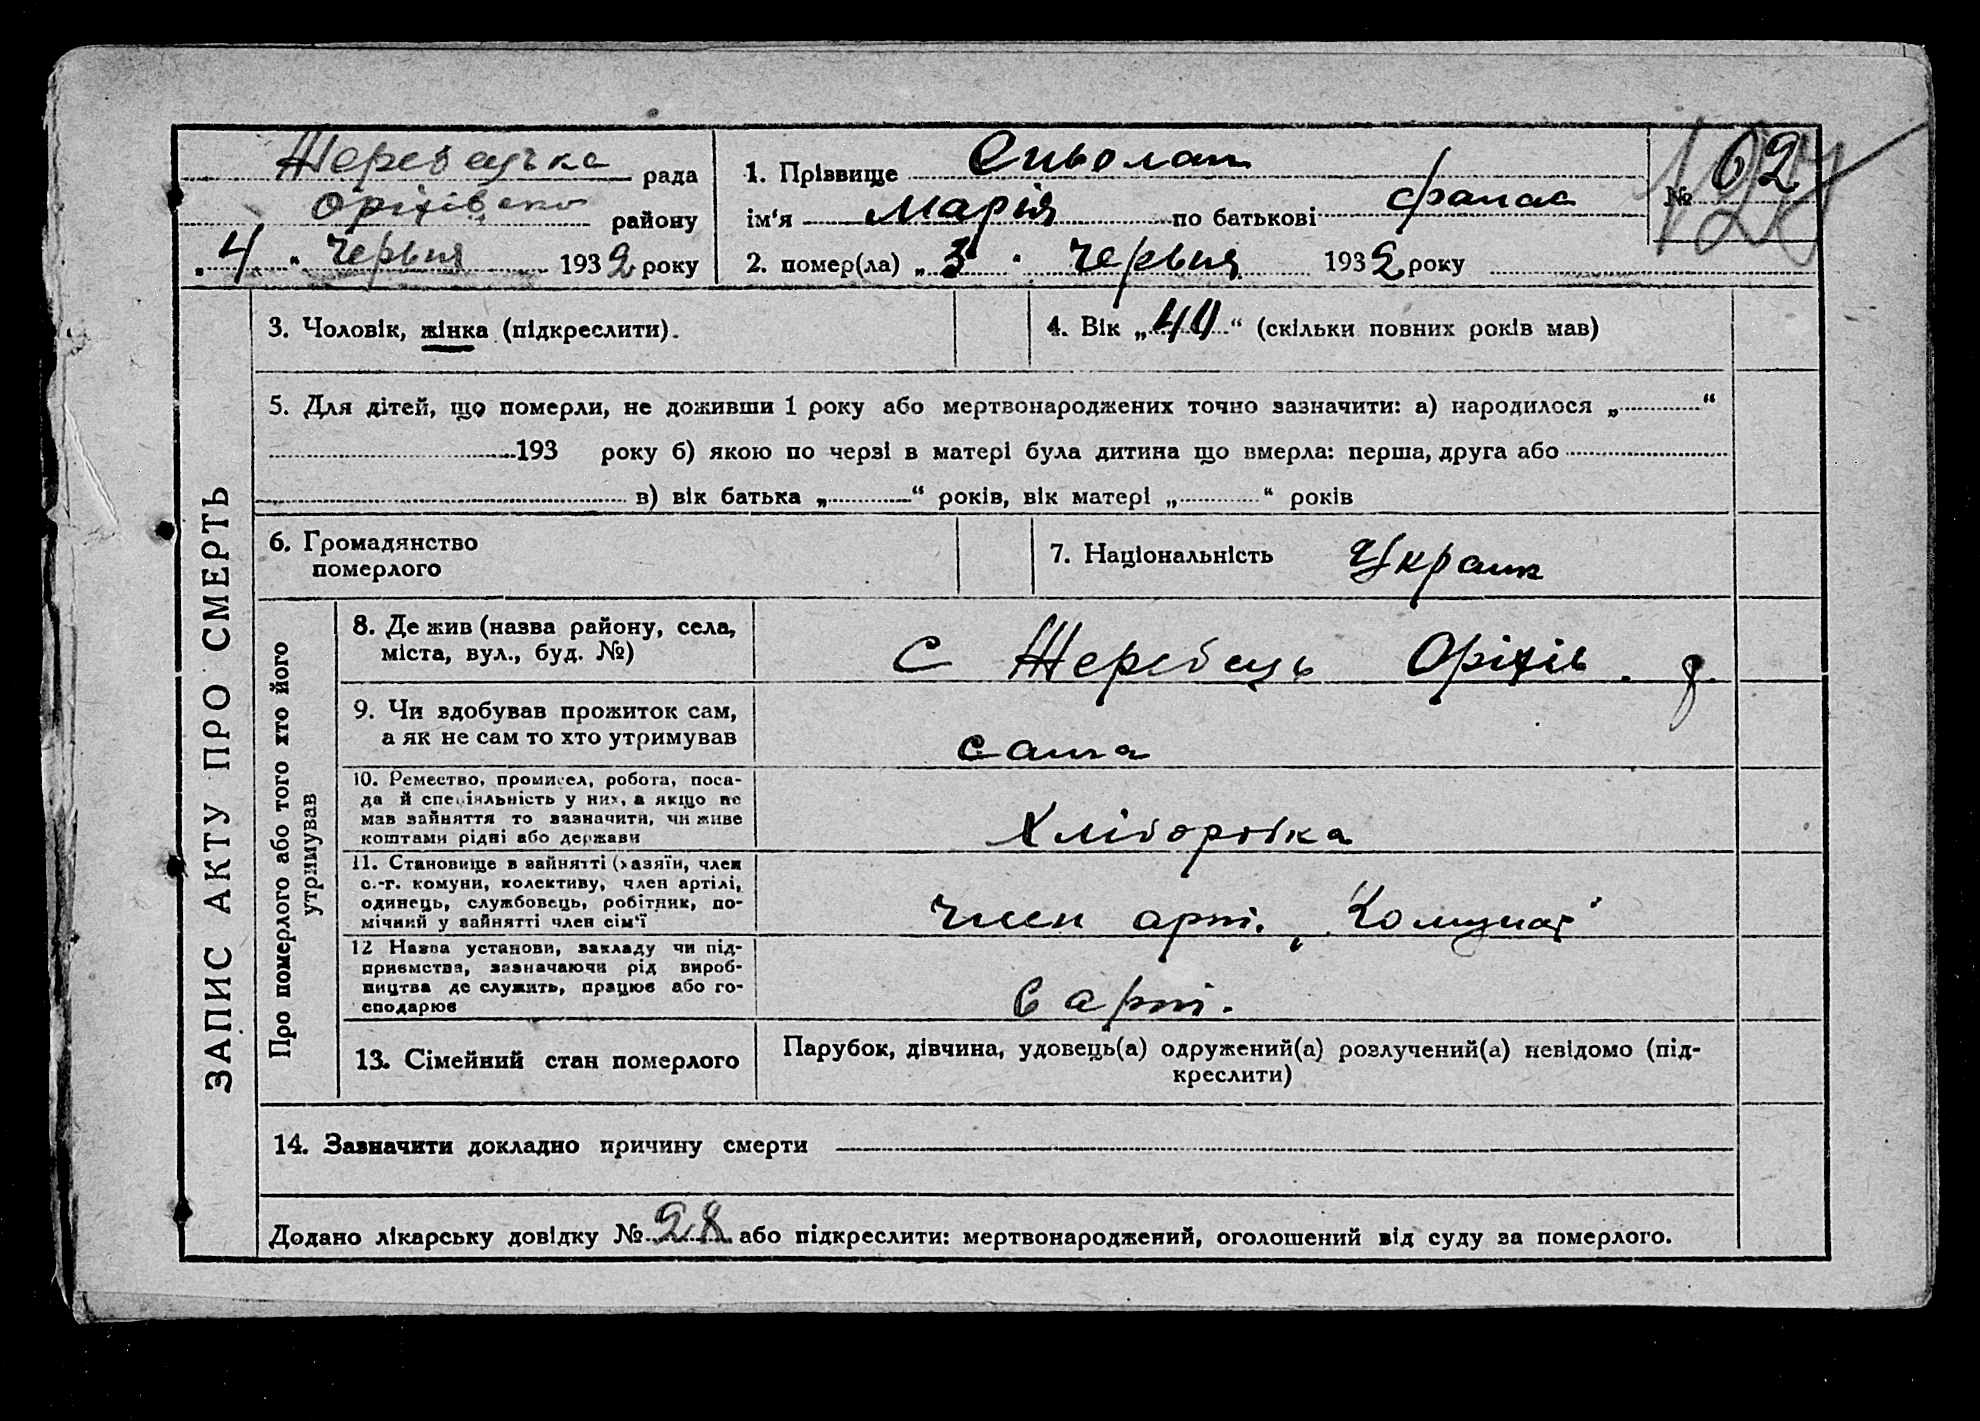 Жеребецька рада
Оріхівсько району
„4“ Червня 1932 року
1. Прізвище
ім'я Марія по батькові Фанас
2. помер(ла) „3“ Червня 1932 року
№ 62
ЗАПИС АКТУ ПРО СМЕРТЬ
3. Чоловік, жінка (підкреслити).
4. Вік „40“ (скільки повних років мав)
5. Для дітей, що померли, не доживши 1 року або мертвонароджених точно зазначити: а) народилося „ “
193 року б) якою по черзі в матері була дитина що вмерла: перша, друга або
в) вік батька „ “ років, вік матері „ “ років
6. Громадянство
померлого
7. Національність Украин
Про померлого або того хто його
утримував
8. Де жив (назва району, села,
міста, вул., буд. №)
С Жеребець Оріхів. р.
9. Чи здобував прожиток сам,
а як не сам то хто утримував
сама
10. Ремество, промисел, робота, поса-
да й спеціяльність у них, а якщо не
мав зайняття то зазначити, чи живе
коштами рідні або держави
Хліборобка
11. Становище в зайнятті (хазяїн, член
с.-г. комуни, колективу, член артілі,
одинець, службовець, робітник, по-
мічний у зайнятті член сім'ї
член арт. „Комунар“
12 Назва установи, закладу чи під-
приємства, зазначаючи рід вироб-
ництва де служить, працює або го-
сподарює
в арт.
13. Сімейний стан померлого
Парубок, дівчина, удовець(а) одружений(а) розлучений(а) невідомо (під-
креслити)
14. Зазначити докладно причину смерти
Додано лікарську довідку № 28 або підкреслити: мертвонароджений, оголошений від суду за померлого.